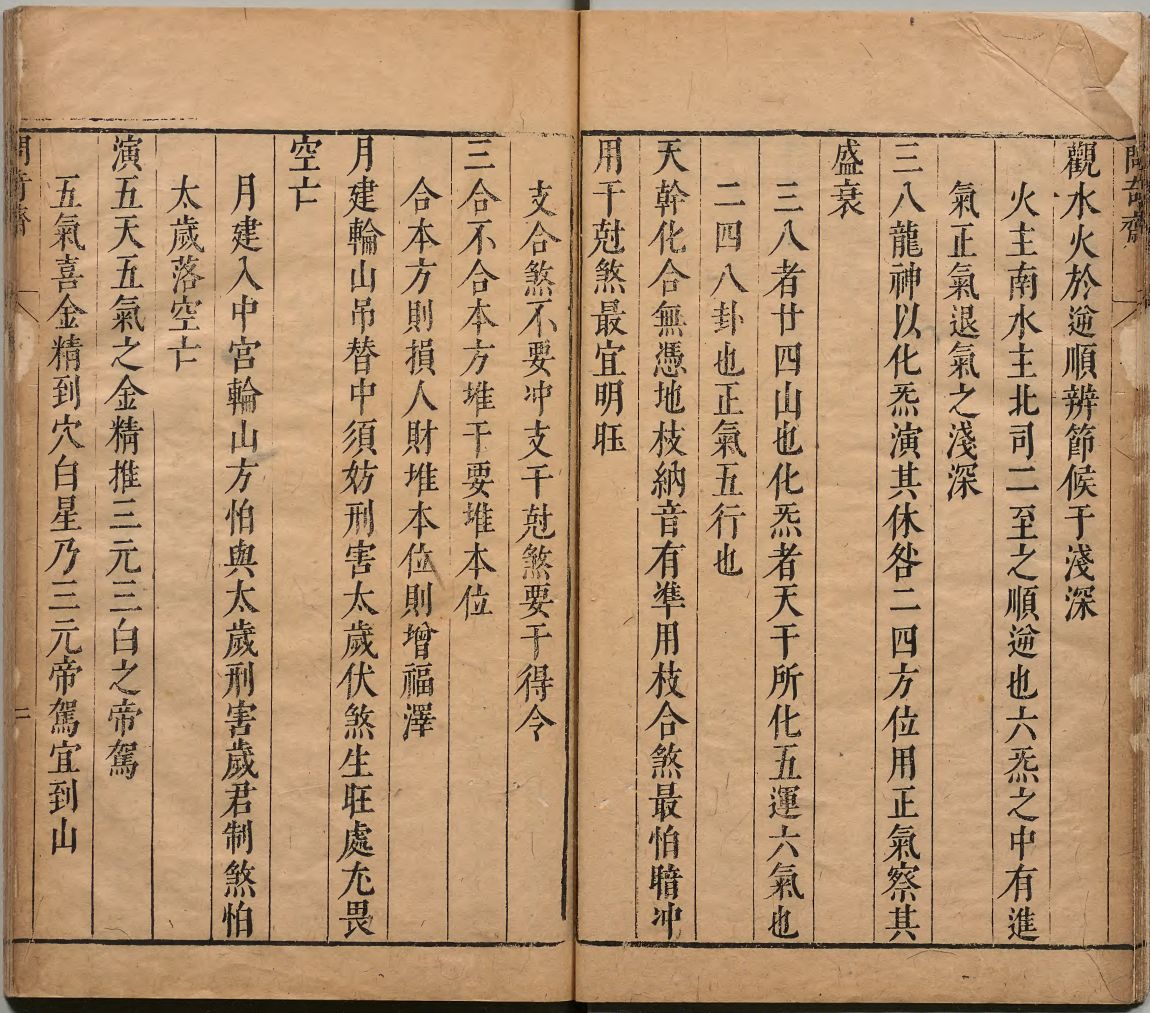 觀水火於逆順辨節候于淺深
火主南水主北司二至之順逆也六炁之中有進
氣正氣退氣之淺深
三八龍神以化炁演其休咎二四方位用正氣察其
盛衰
三八者廿四山也化炁者天干所化五運六氣也
二四八卦也正氣五行也
天幹化合無憑地枝納音有準用枝合煞最怕暗冲
用干尅煞最宜明旺
支合煞不要冲支干尅煞要干得令
三合不合本方堆干要堆本位
合本方則損人財堆本位則增福澤
月建輪山吊替中須妨刑害太歲伏煞生旺處尢畏
空亡
月建入中宮輪山方怕與太歲刑害歲君制煞怕
太歲落空亡
演五天五氣之金精推三元三白之帝駕
五氣喜金精到穴白星乃三元帝駕宜到山
二